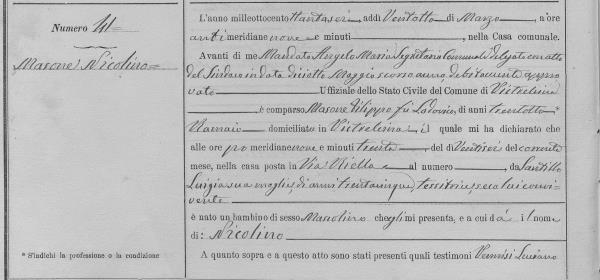 Numero 41
Masone Nicolino
* S'indichi la professione o la condizione
L'anno milleottocento ttantasei, addì Ventotto di Marzo, a ore
antimeridiane nove e minuti, nella Casa comunale.
Avanti di me Mandato Angelo Maria Segretario Comunale delegato con atto
del Sindaco in data diciotto Maggio scorso anno, debitamente appro
vato Uffiziale dello Stato Civile del Comune di
è comparso Masone Filippo fu Lodovico, di anni trentotto *
domiciliato in il quale mi ha dichiarato che
alle ore pomeridiane nove e minuti trenta, del dì Ventisei del corrente
mese, nella casa posta in Via al numero, da Santillo
Luigia sua moglie, di anni trentacinque, seco lui convi
vente
è nato un bambino di sesso Mascolino che egli mi presenta, e a cui dà il nome
di: Nicolino
A quanto sopra e a questo atto sono stati presenti quali testimoni Luciano